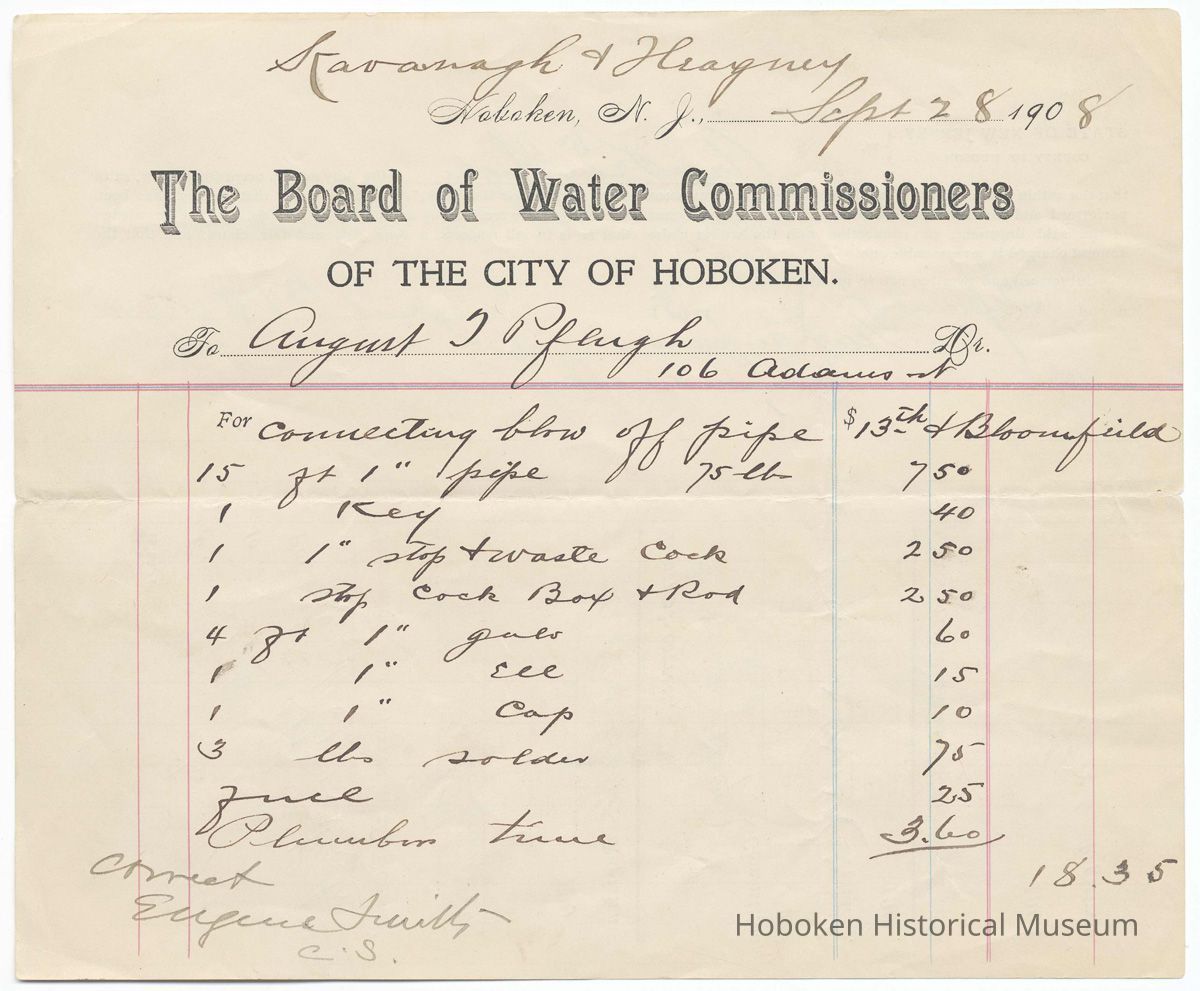 Kavanagh & Heagney
Hoboken, N. J., Sept 28 1908
The Board of Water Commissioners
OF THE CITY OF HOBOKEN.
To August I Pflugh Dr.
106 Adams st
For connecting blow off pipe $ 13th & Bloomfield
15 ft 1" pipe 75 lbs 7 50
1 Key 40
1 1" stop & waste Cock 2 50
1 stop Cock Box & Rod 2 50
4 ft 1" galv 60
1 1" Ell 15
1 1" Cap 10
3 lbs solder 75
fuel 25
Plumbers time 3.60
18.35
Correct
Eugene Smith
C.S.
Hoboken Historical Museum